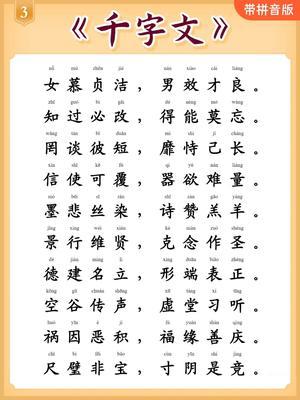 3
《千字文》
带拼音版
nǚ mù zhēn jié nán xiào cái liáng
女慕贞洁，男效才良。
zhī guò bì gǎi dé néng mò wàng
知过必改，得能莫忘。
wǎng tán bǐ duǎn mǐ shì jǐ cháng
罔谈彼短，靡恃己长。
xìn shǐ kě fù qì yù nán liáng
信使可覆，器欲难量。
mò bēi sī rǎn shī zàn gāo yáng
墨悲丝染，诗赞羔羊。
jǐng xíng wéi xián kè niàn zuò shèng
景行维贤，克念作圣。
dé jiàn míng lì xíng duān biǎo zhèng
德建名立，形端表正。
kōng gǔ chuán shēng xū táng xí tīng
空谷传声，虚堂习听。
huò yīn è jī fú yuán shàn qìng
祸因恶积，福缘善庆。
chǐ bì fēi bǎo cùn yīn shì jìng
尺璧非宝，寸阴是竞。